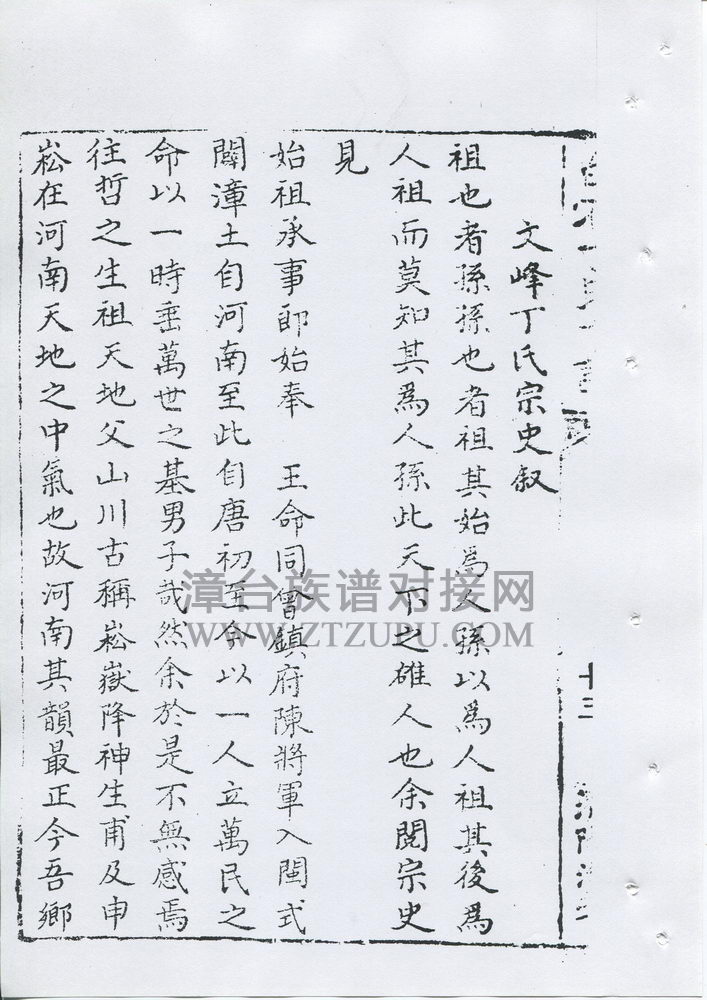 文峰丁氏宗史叙
祖也者孫孫也者祖其始為人孫以為人祖其後為
人祖而莫知其為人孫此天下之碓人也余閱宗史
見
始祖承事郎始奉 王命同曾鎮府陳將軍入閩式
闢漳土自河南至此自唐初至今以一人立萬民之
命以一時垂萬世之基男子哉然余於是不無感焉
往哲之生祖天地父山川古稱崧嶽降神生甫及申
崧在河南天地之中氣也故河南其韻最正今吾鄉
十三
漳台族谱对接网
WWW.ZTZUPU.COM